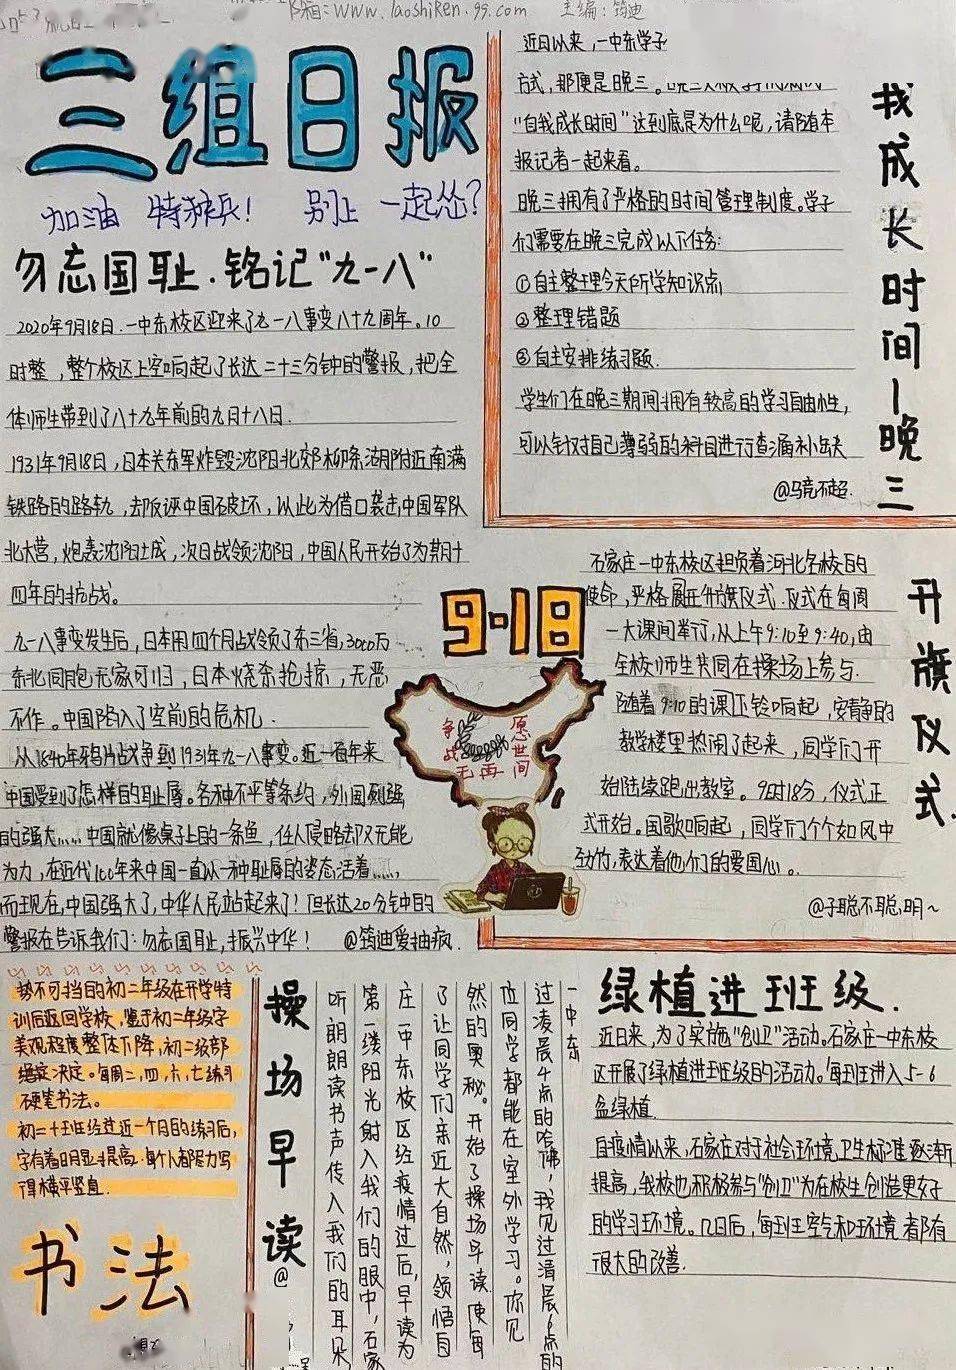 箱:www.laoshiken.99.com 主编:筠迪
三组日报
加油 特种兵! 别上 一起怂?
勿忘国耻.铭记"九一八"
2020年9月18日.一中东校区迎来了九一八事变八十九周年。10
时整,整个校区上空响起了长达二十三分钟的警报,把全
体师生带到了八十九年前的九月十八日.
1931年9月18日,日本关东军炸毁沈阳北郊柳条湖附近南满
铁路的路轨,却反诬中国破坏,以此为借口袭击中国军队
北大营,炮轰沈阳城,次日战领沈阳,中国人民开始了为期十
四年的抗战。
九一八事变发生后,日本用四个月战领了东三省,3000万
东北同胞无家可归,日本烧杀抢掠,无恶
不作。中国陷入了空前的危机.
从1840年鸦片战争到1931年九一八事变。近一百年来
中国受到了怎样的耻辱。各种不平等条约,外国列强
的强大……中国就像桌子上的一条鱼,任人侵略却又无能
为力,在近代100年来中国一直以一种耻辱的姿态活着……,
而现在,中国强大了,中华人民站起来了!但长达20分钟中的
警报在告诉我们:勿忘国耻,振兴中华! @筠迪爱抽疯.
近日以来,一中东学子
方式,那便是晚三。
"自我成长时间"这到底是为什么呢,请随本
报记者一起来看。
晚三拥有了严格的时间管理制度。学子
们需要在晚三完成以下任务:
①自主整理今天所学知识点
②整理错题
③自主安排练习题.
学生们在晚三期间拥有较高的学习自由性,
可以针对自己薄弱的科目进行查漏补缺
@马竞不超.
我成长时间—晚三
9·18
愿世间
再无
战争
石家庄一中东校区担负着河北名校的
使命,严格展开升旗仪式.仪式在每周
一大课间举行,从上午9:10至9:40,由
全校师生共同在操场上参与.
随着9:10的课下铃响起,安静的
教学楼里热闹了起来,同学们开
始陆续跑出教室。9时18分,仪式正
式开始。国歌响起,同学们个个如风中
劲竹,表达着他们的爱国心。
@子聪不聪明~
升旗仪式.
势不可挡的初二年级在开学特
训后返回学校,鉴于初二年级字
美观程度整体下降,初二级部
决定。每周二,四,六,七练习
硬笔书法。
初二十班经过近一个月的练习后,
字有着日月显提高.每个人都努力写
得横平竖直.
书法
操场早读
@
一中东
过凌晨4点的哈佛,我见过清晨6点的
位同学都能在室外学习。你见
然的奥秘。开始了操场早读,使每
了让同学们亲近大自然,领悟自
庄一中东校区经疫情过后,早读为
第一缕阳光射入我们的眼中,石家
听朗朗读书声传入我们的耳朵,
绿植进班级.
近日来,为了实施"创卫"活动。石家庄一中东校
区开展了绿植进班级的活动。每班进入5-6
盆绿植.
自疫情以来,石家庄对于社会环境卫生标准逐渐
提高,我校也积极参与"创卫"为在校生创造更好
的学习环境。几日后,每班空气和环境都有
很大的改善.